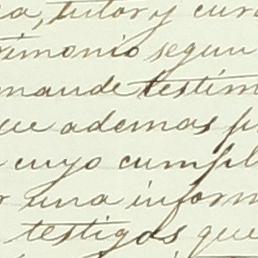 a, tutor y cura
rimonio segun
mande testim
que ademas p
cuyo cumpl
una inform
testigos que